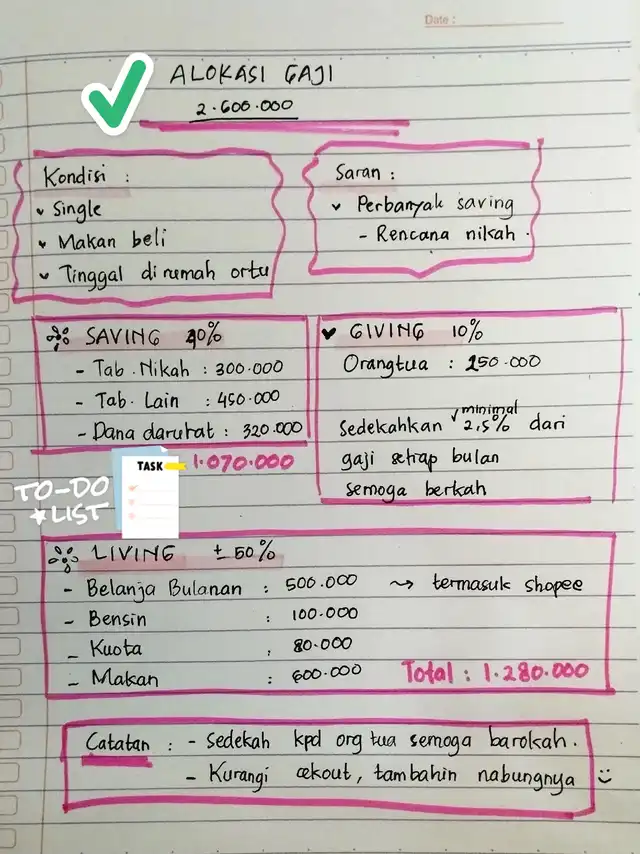 Date :
ALOKASI GAJI
2.600.000
Kondisi :
Single
Makan beli
Tinggal di rumah ortu
Saran :
Perbanyak saving
- Rencana nikah.
SAVING 40%
- Tab. Nikah : 300.000
- Tab. Lain : 450.000
- Dana darurat : 320.000
1.070.000
GIVING 10%
Orangtua : 250.000
Sedekahkan minimal 2,5% dari
gaji setiap bulan
semoga berkah
TASK
TO-DO
LIST
LIVING ± 50%
- Belanja Bulanan : 500.000 ⤳ termasuk shopee
- Bensin : 100.000
- Kuota : 80.000
- Makan : 600.000
Total : 1.280.000
Catatan : - Sedekah kpd org tua semoga barokah.
- Kurangi cekout, tambahin nabungnya